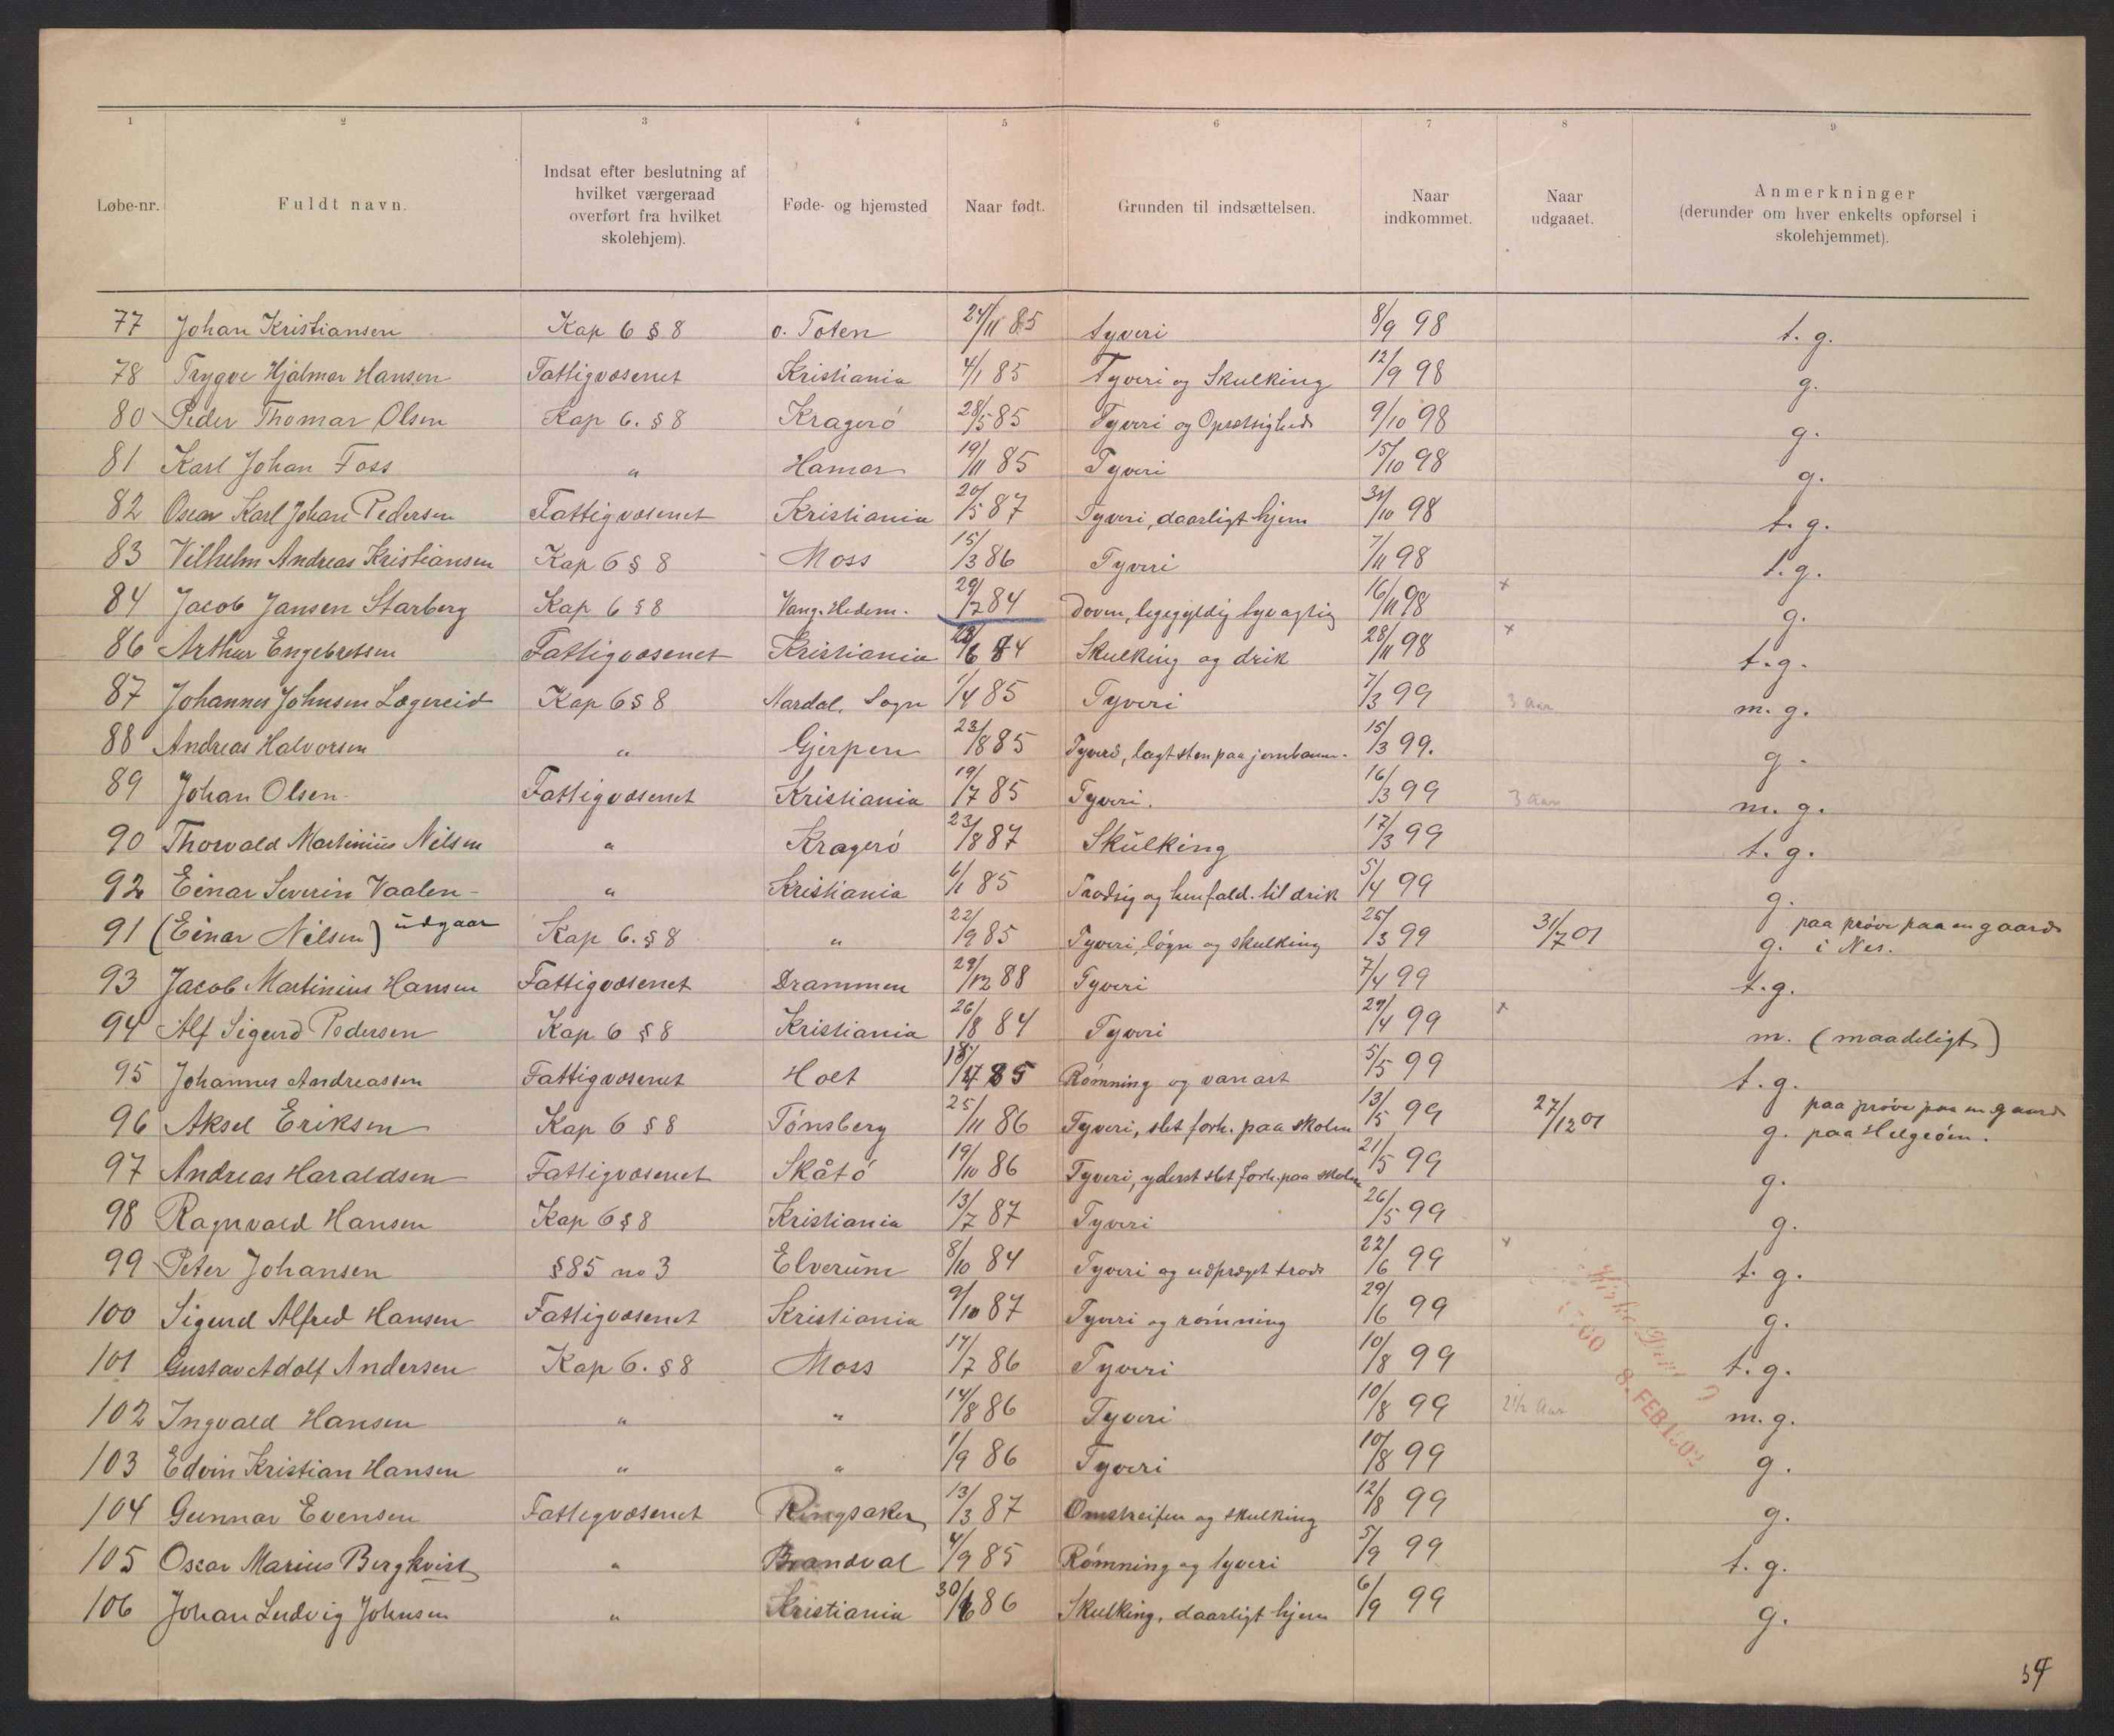 1 2 3 4 5 6 7 8 9
Løbe-nr. Fuldt navn. Indsat efter beslutning af hvilket værgeraad overført fra hvilket skolehjem). Føde- og hjemsted Naar født. Grunden til indsættelsen. Naar indkommet. Naar udgaaet. Anmerkninger (derunder om hver enkelts opførsel i skolehjemmet).
77 Johan Kristiansen Kap 6 § 8 o. Toten 24/11 85 tyveri 8/9 98 t. g.
78 Trygve Hjalmar Hansen Fattigvæsenet Kristiania 4/1 85 Tyveri og Skulking 12/9 98 g.
80 Peder Thomar Olsen Kap 6. § 8 Kragerö 28/5 85 Tyveri og Opsætsighed 9/10 98 g.
81 Karl Johan Foss " Hamar 19/11 85 Tyveri 15/10 98 g.
82 Oscar Karl Johan Pedersen Fattigvæsenet Kristiania 20/5 87 Tyveri, daarligt hjem 31/10 98 t. g.
83 Vilhelm Andreas Kristiansen Kap 6 § 8 Moss 15/3 86 Tyveri 7/11 98 t. g.
84 Jacob Jansen Starberg Kap 6 § 8 Vang. Hedem. 29/7 84 Doven, legegyldig tyvagtig 16/11 98 x g.
86 Arthur Engebretsen Fattigvæsenet Kristiania 28/6 84 Skulking og drik 28/11 98 x t. g.
87 Johannes Johnsen Lægereid Kap 6 § 8 Aardal, Sogn 1/4 85 Tyveri 7/3 99 3 aar m. g.
88 Andreas Halvorsen " Gjerpen 23/8 85 Tyveri, lagt sten paa jernbanen. 15/3 99. g.
89 Johan Olsen Fattigvæsenet Kristiania 19/7 85 Tyveri. 16/3 99 3 aar m. g.
90 Thorvald Martinius Nilsen " Kragerö 23/8 87 Skulking 17/3 99 t. g.
92 Einar Severin Vaalen " Kristiania 6/1 85 Trodsig og henfald. til drik 5/4 99 g.
91 (Einar Nilsen) udgaar Kap 6. § 8 " 22/9 85 Tyveri, lögn og skulking 25/3 99 31/7 01 g. paa pröve paa en gaard i Nes.
93 Jacob Martinius Hansen Fattigvæsenet Drammen 29/12 88 Tyveri 7/4 99 t. g.
94 Alf Sigurd Pedersen Kap 6 § 8 Kristiania 26/8 84 Tyveri 29/4 99 x m. (maadeligt)
95 Johannes Andreassen Fattigvæsenet Holt 85 Römning og vanart 5/5 99 t. g.
96 Aksel Eriksen Kap 6 § 8 Tönsberg 25/11 86 Tyveri, slet forh. paa skolen 13/5 99 27/12 01 g. paa pröve paa en gaard paa Helgeöen.
97 Andreas Haraldsen Fattigvæsenet Skåtö 19/10 86 Tyveri, yderst slet forh. paa skolen 21/5 99 g.
98 Ragnvald Hansen Kap 6 § 8 Kristiania 13/7 87 Tyveri 26/5 99 g.
99 Peter Johansen § 85 no 3 Elverum 8/10 84 Tyveri og udpræget trods 22/6 99 x t. g.
100 Sigurd Alfred Hansen Fattigvæsenet Kristiania 9/10 87 Tyveri og römning 29/6 99 g.
101 Gustav Adolf Andersen Kap 6. § 8 Moss 17/7 86 Tyveri 10/8 99 t. g.
102 Ingvald Hansen " " 14/8 86 Tyveri 10/8 99 2 1/2 aar m. g.
103 Edvin Kristian Hansen " " 1/9 86 Tyveri 10/8 99 g.
104 Gunnar Evensen Fattigvæsenet Ringsaker 13/3 87 Omstreifen og skulking 12/8 99 g.
105 Oscar Marius Bergkvist " Brandval 4/9 85 Römning og tyveri 5/9 99 t. g.
106 Johan Ludvig Johnsen " Kristiania 30/6 86 Skulking, daarligt hjem 6/9 99 g.
8. FEB. 1902